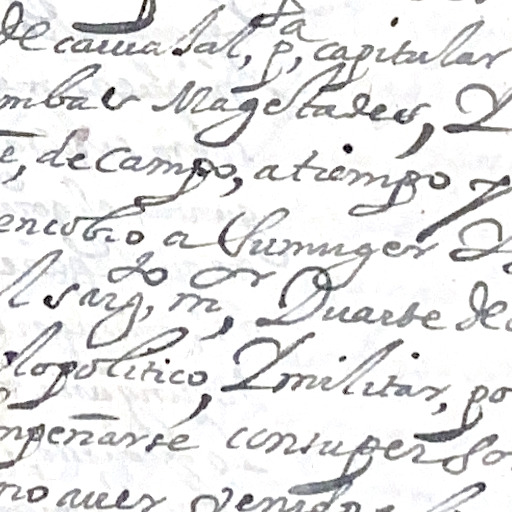 de carvajal, pª, capitular
mbas Magestades, Y
e, de Campo, atiempo y
encobio a Su muger D
l sargto, mor, Duarte de
lo politico, Y militar, po
mpeñarse con su perso
no aver venido